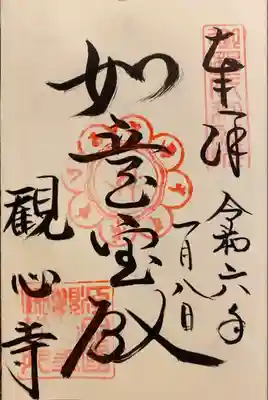 奉拝
令和六年
一月八日
如意宝殿
観心寺